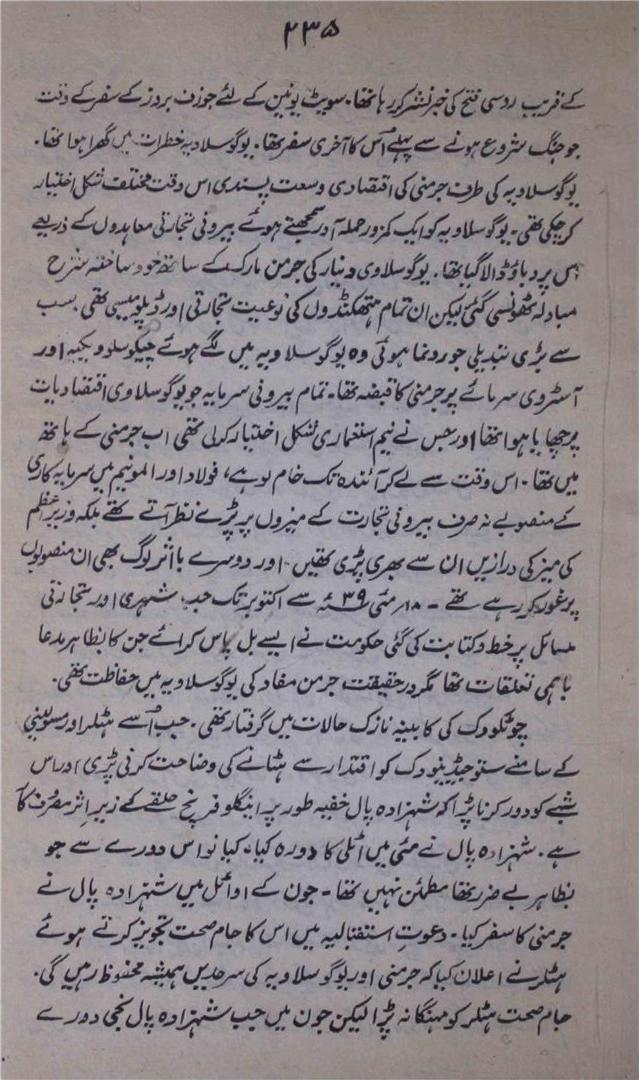 ۲۳۵
کے قریب روسی فتح کی خبر نشر کر رہا تھا۔ سویٹ یونین کے لئے جوزف بروز کے سفر کے وقت
جو جنگ شروع ہونے سے پہلے اس کا آخری سفر تھا۔ یوگوسلاویہ خطرات میں گھرا ہوا تھا۔
یوگوسلاویہ کی طرف جرمنی کی اقتصادی وسعت پسندی اس وقت مختلف شکل اختیار
کر چکی تھی۔ یوگوسلاویہ کو ایک کمزور حملہ آور سمجھتے ہوئے بیرونی تجارتی معاہدوں کے ذریعے
اس پر دباؤ ڈالا گیا تھا۔ یوگوسلاوی دینار کی جرمن مارک کے ساتھ خود ساختہ شرح
مبادلہ ٹھونسی گئی لیکن ان تمام ہتھکنڈوں کی نوعیت تجارتی اور ڈپلومیسی تھی۔ سب
سے بڑی تبدیلی جو رونما ہوئی وہ یوگوسلاویہ میں لگے ہوئے چیکوسلوویکیہ اور
آسٹروی سرمائے پر جرمنی کا قبضہ تھا۔ تمام بیرونی سرمایہ جو یوگوسلاوی اقتصادیات
پر چھایا ہوا تھا اور جس نے نیم استعماری شکل اختیار کر لی تھی اب جرمنی کے ہاتھ
میں تھا۔ اس وقت سے لے کر آئندہ تک خام لوہے، فولاد اور المونیم میں سرمایہ کاری
کے منصوبے نہ صرف بیرونی تجارت کے میزوں پر پڑے نظر آتے تھے بلکہ وزیر اعظم
کی میز کی درازیں ان سے بھری پڑی تھیں۔ اور دوسرے با اثر لوگ بھی ان منصوبوں
پر غور کر رہے تھے۔ ۱۸ مئی ۳۹ء سے اکتوبر تک جب شہری اور تجارتی
مسائل پر خط و کتابت کی گئی حکومت نے ایسے بل پاس کرائے جن کا بظاہر مدعا
باہمی تعلقات تھا مگر در حقیقت جرمن مفاد کی یوگوسلاویہ میں حفاظت تھی۔
چوٹکووک کی کابینہ نازک حالات میں گرفتار تھی۔ جب اُسے ہٹلر اور مسولینی
کے سامنے ستوجیڈینووک کو اقتدار سے ہٹانے کی وضاحت کرنی پڑی اور اس
شبے کو دور کرنا پڑا کہ شہزادہ پال خفیہ طور پر اینگلو فرنچ حلقے کے زیر اثر مصروف کار
ہے۔ شہزادہ پال نے مئی میں اٹلی کا دورہ کیا، کیا تو اس دورے سے جو
بظاہر بے ضرر تھا مطمئن نہیں تھا۔ جون کے اوائل میں شہزادہ پال نے
جرمنی کا سفر کیا۔ دعوت استقبالیہ میں اس کا جام صحت تجویز کرتے ہوئے
ہٹلر نے اعلان کیا کہ جرمنی اور یوگوسلاویہ کی سرحدیں ہمیشہ محفوظ رہیں گی۔
جام صحت ہٹلر کو مہنگا نہ پڑا لیکن جون میں جب شہزادہ پال نجی دورے